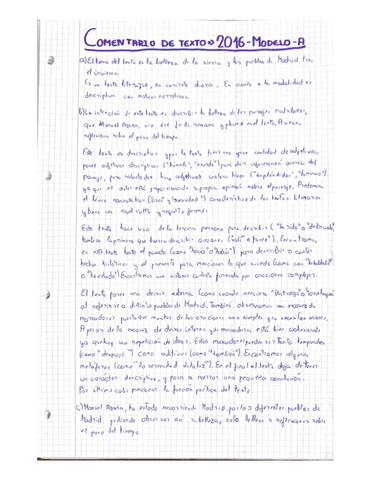 COMENTARIO DE TEXTO → 2016 - MODELO - A
a) El tema del texto es la belleza de la sierra y los pueblos de Madrid tras
el invierno.
Es un texto literario, en concreto diario. En cuanto a la modalidad es
descriptivo con matices narrativos.
b) La intención de este texto es describir la belleza de los paisajes madrileños,
que Manuel Azaña, vio ese fin de semana y plasmó en el texto. A veces
reflexiona sobre el paso del tiempo.
Este texto es descriptivo y por lo tanto tiene gran cantidad de adjetivos,
posee adjetivos descriptivos para dar información acerca del
paisaje, pero sobretodo hay adjetivos valorativos ("espléndidos", "hermoso")
ya que el autor está proporcionando su propia opinión sobre el paisaje. Predomina
el léxico connotativo característico de los textos literarios
y tiene un nivel culto y registro formal.
Este texto hace uso de la tercera persona para describir
también la primera que busca describir acciones
en este texto tanto el pasado (como "hacía" o "había") para describir o contar
hechos históricos y el presente para mencionar lo que sucede
Encontramos una sintaxis cuidada formada por oraciones complejas.
El texto posee una deixis externa (como cuando menciona "Buitrago" o
al referirse a distintos pueblos de Madrid. También observamos una escasez de
marcadores puesto que muchas de las oraciones son simples y se encuentran unidas.
A pesar de la escasez de deixis interna y de marcadores, está bien cohesionado
ya que hay una repetición de ideas. Estos marcadores pueden ser: tanto temporales
(como "después") como aditivos (como "también"). Encontramos alguna
metáfora. En el final el texto deja de tener
un carácter descriptivo, y pasa a narrar una pequeña conclusión.
Por último cabe mencionar la función poética del texto.
c) Manuel Azaña, ha estado recorriendo Madrid, por los diferentes pueblos de
Madrid pudiendo observar así su belleza, esto lo lleva a reflexionar sobre
el paso del tiempo.